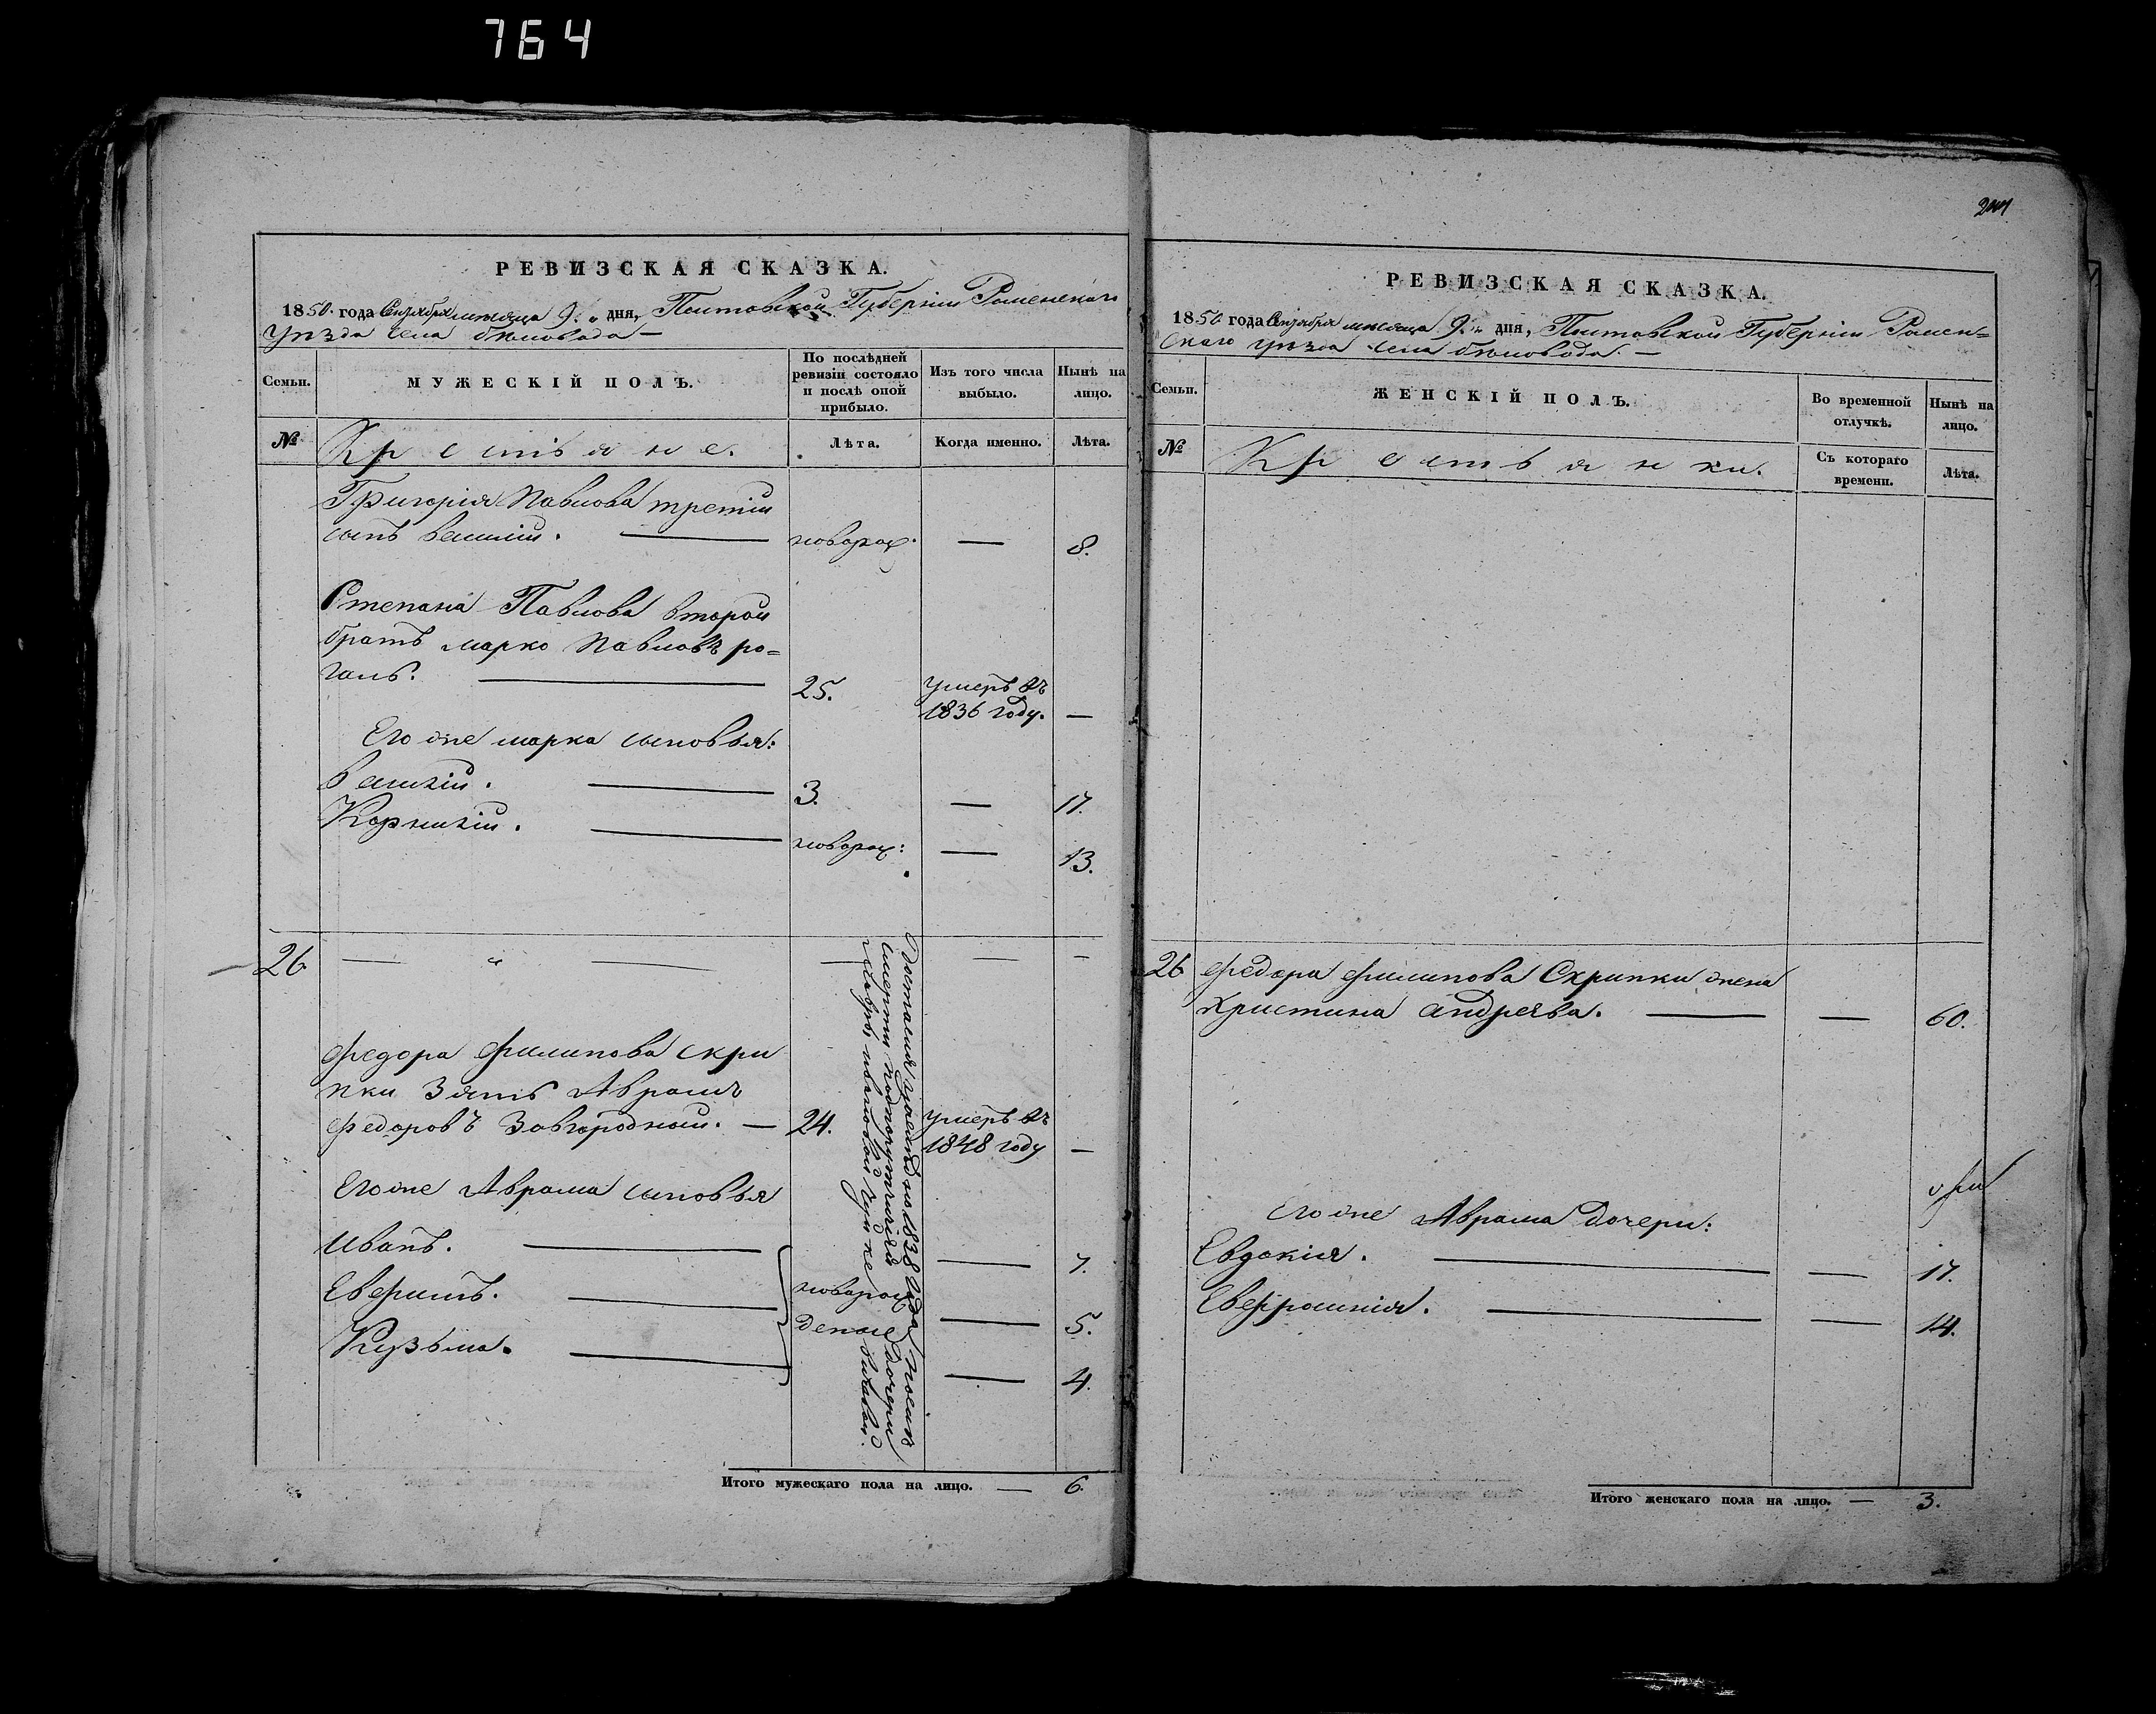 764
РЕВИЗСКАЯ СКАЗКА.
1850. года Сентября мѣсяца 9. дня, Полтавской Губерніи Роменскаго
уѣзда села бѣловода —
Семьи.
МУЖЕСКІЙ ПОЛЪ.
По послѣдней
ревизіи состояло
и послѣ оной
прибыло.
Изъ того числа
выбыло.
Нынѣ на
лицо.
№
Крестьяне.
Лѣта.
Когда именно.
Лѣта.
Григорія Павлова третій
сынъ Василій. — новорож. — 8.
Степана Павлова второй
братъ марко Павловъ ро=
галь. — 25. умеръ въ
1836 году. —
Его же марка сыновья:
Василій. — 3. — 17.
Корнилій. — новорож: — 13.
26
Федора Филипова скри
пки зять Аврамъ
Федоровъ Завгородній. — 24. умеръ въ
1848 году —
Его же Аврама сыновья
Иванъ. — 7.
новорож
Евфимъ. — 5.
денные
Кузьма. — 4.
1838 года послѣ
смерти дочери
Итого мужескаго пола на лицо. — 6.
РЕВИЗСКАЯ СКАЗКА.
1850 года Сентября мѣсяца 9. дня, Полтавской Губерніи Ромен=
скаго уѣзда села бѣловода. —
Семьи.
ЖЕНСКІЙ ПОЛЪ.
Во временной
отлучкѣ.
Нынѣ на
лицо.
№
Крестьянки.
Съ котораго
времени.
Лѣта.
26 Федора Филипова Скрипки жена
Христина Андреева. — — 60.
Его же Аврама дочери:
Евдокія. — — 17.
Евфросинія. — — 14.
Итого женскаго пола на лицо. — 3.